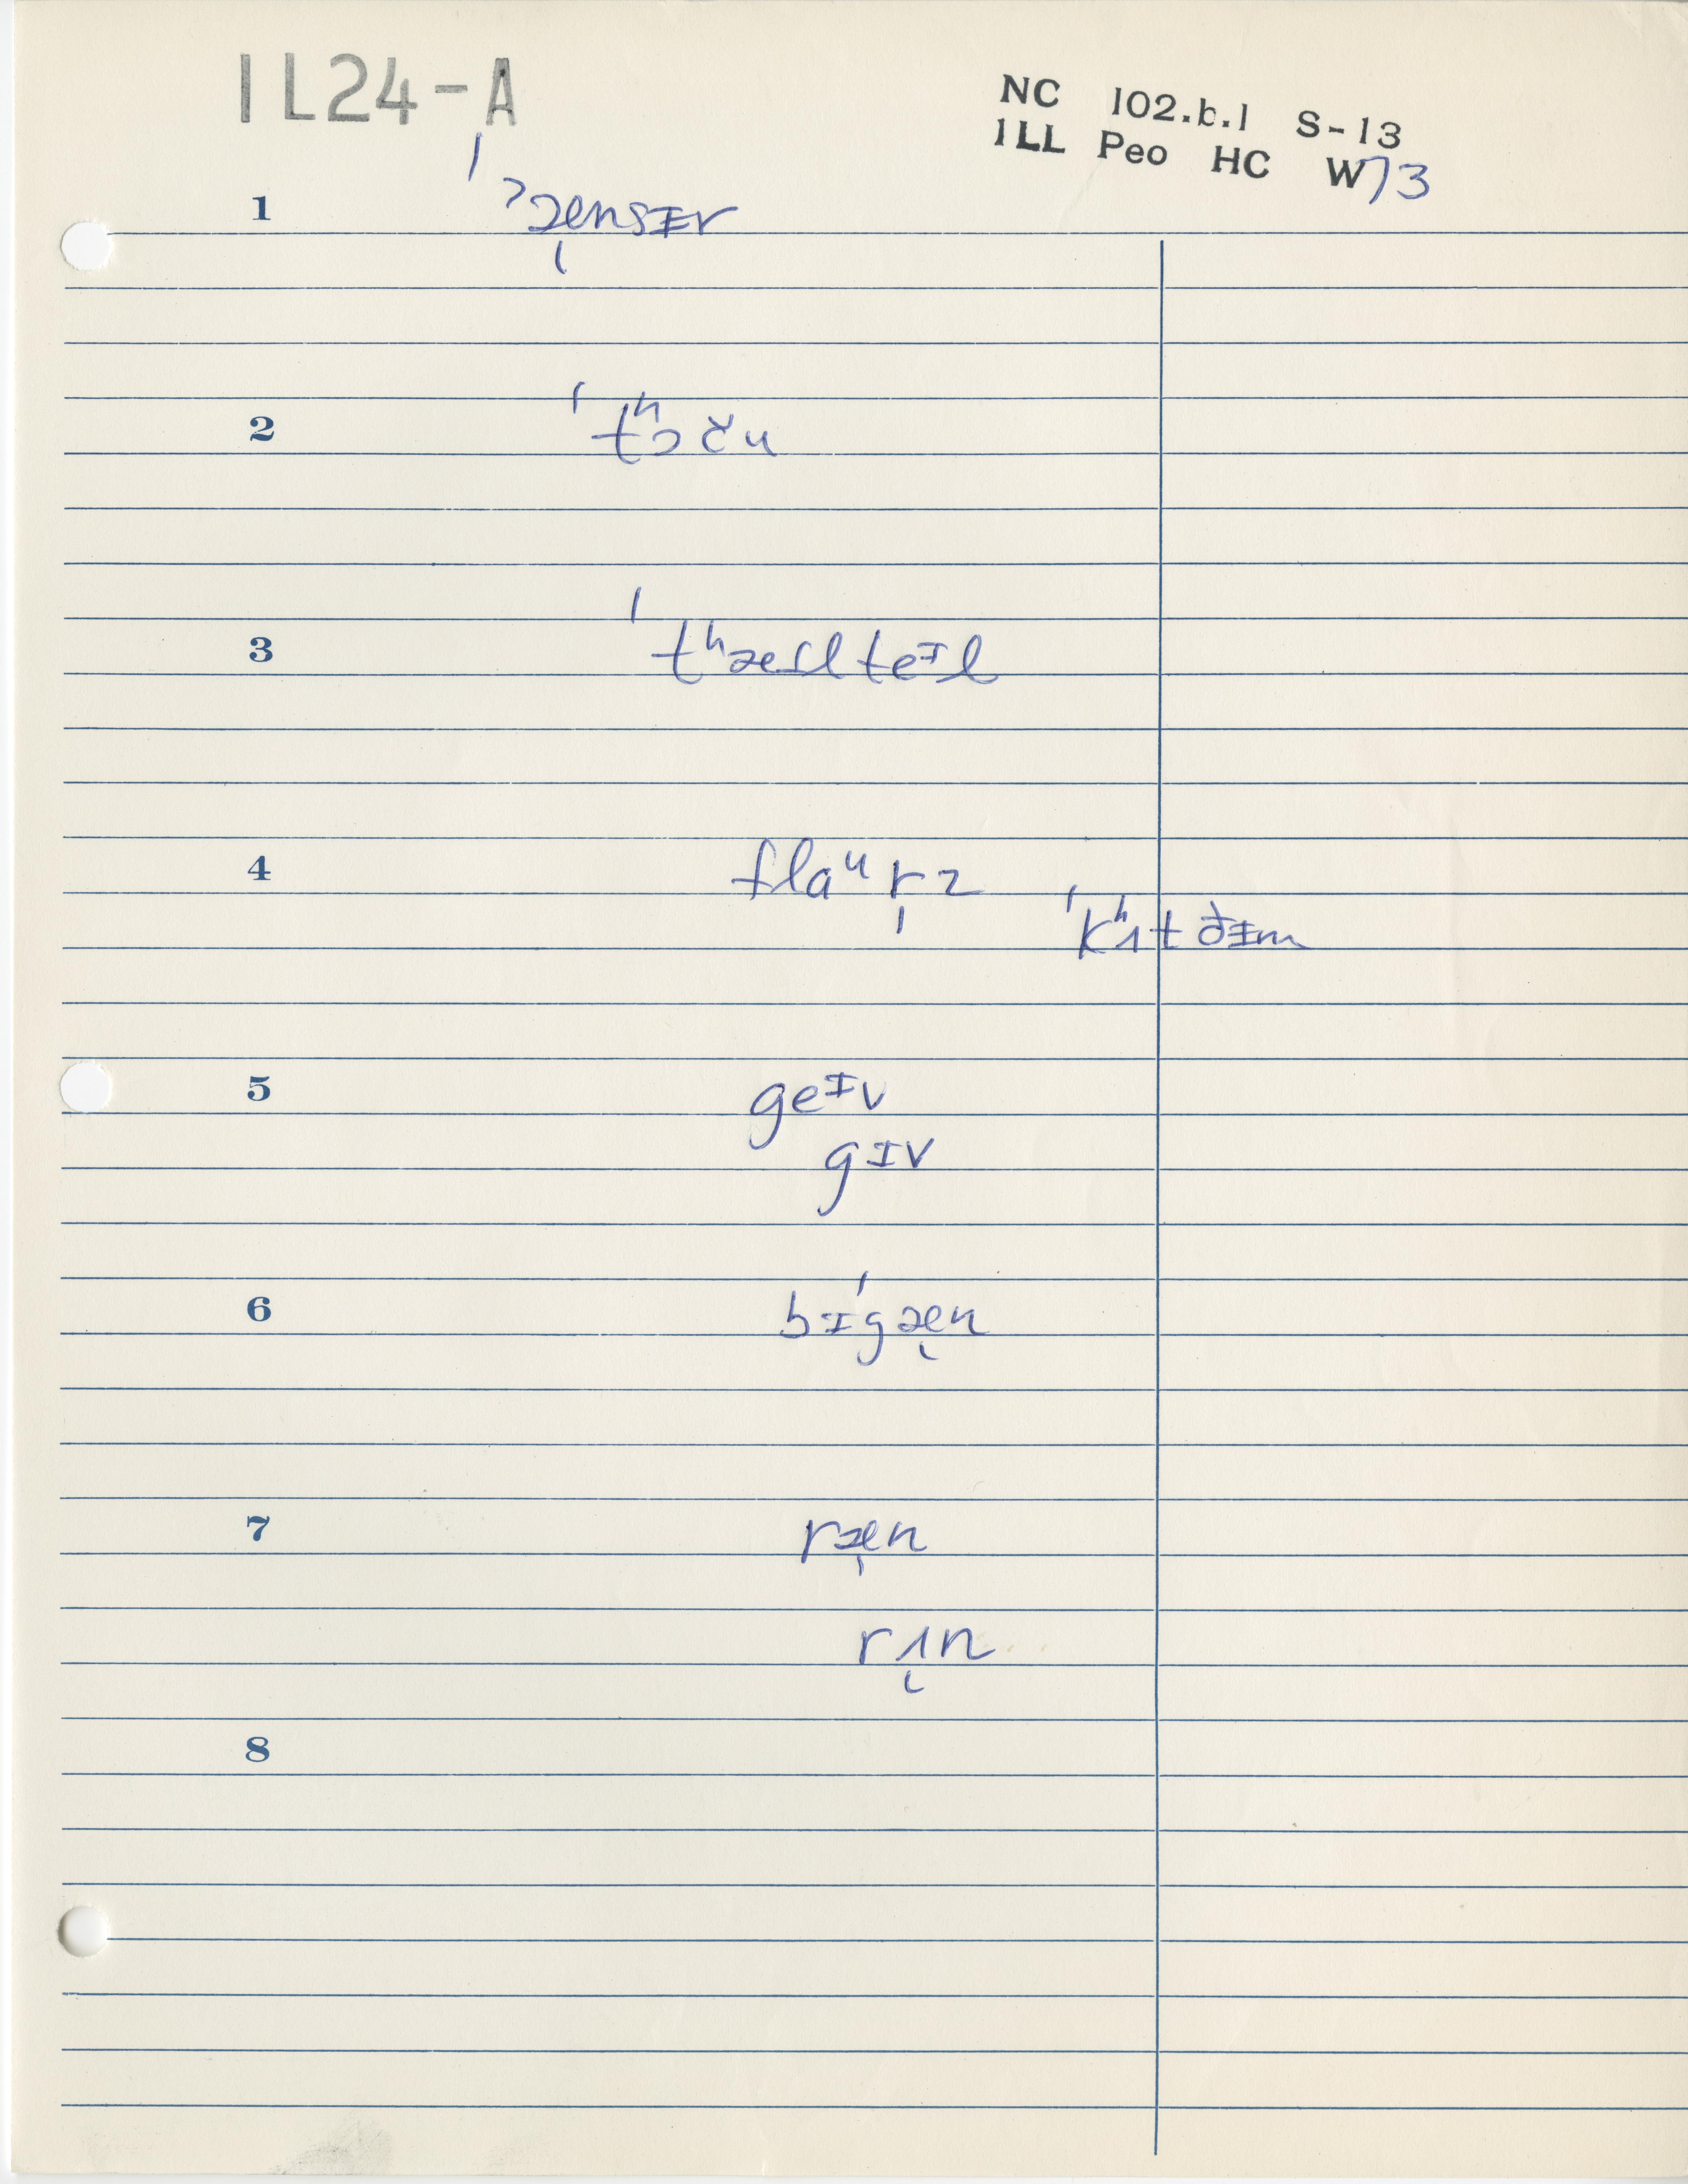 IL24-A
NC 102.b.1 S-13
ILL Peo HC W73
1 ˈˀæ̨nsɪ̵r
2 ˈtʰɔr̆u
3 ˈtʰæsl teᶦl
4 flaᵘr̩z
ˈkʰʌt ðɪ̵m
5 geᶦv
gɪv
6 bɪˈgæ̨n
7 ræ̨n
rʌ̨n
8